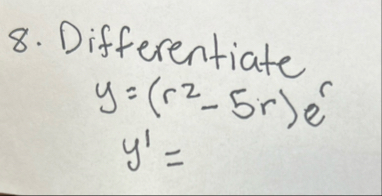 8. Differentiate
y = (r² - 5r)eʳ
y' =